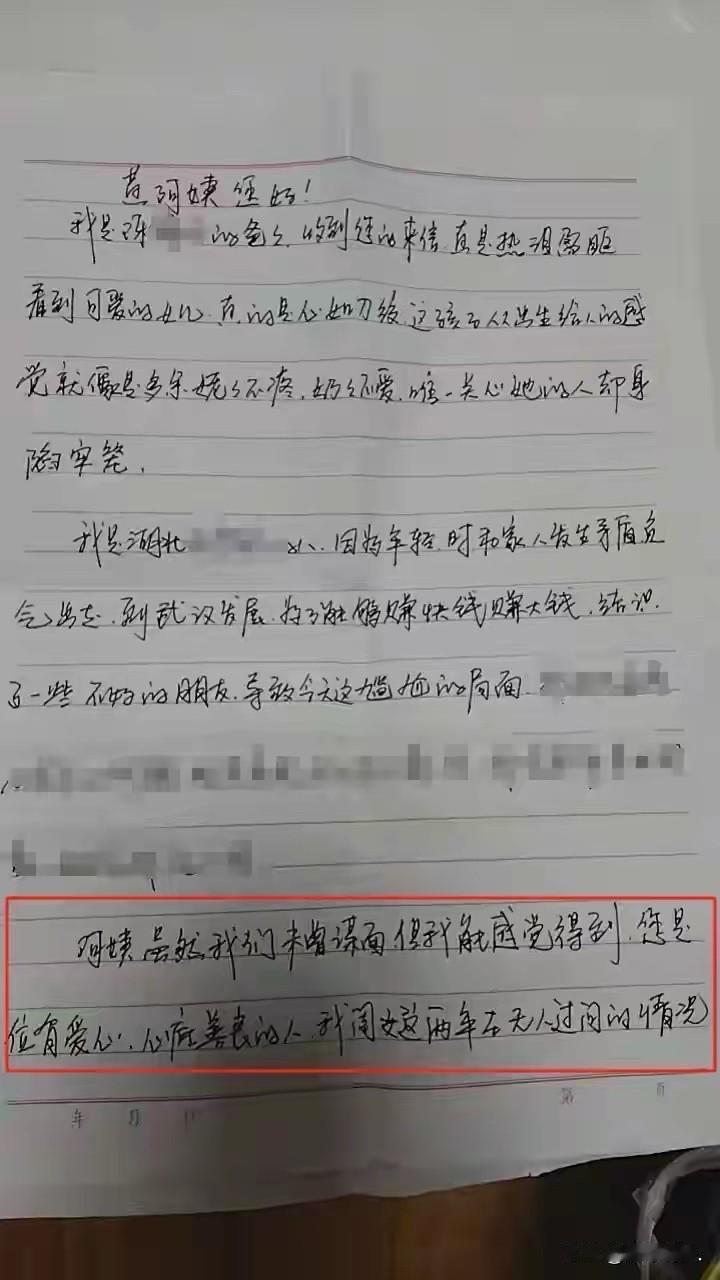 黄阿姨您好!
我是陈 的爸爸,收到您的来信,真是热泪盈眶
看到可爱的女儿,真的是心如刀绞,这孩子从出生给人的感
觉就像是多余,姥姥不疼,奶奶不爱,唯一关心她的人却身
陷牢笼,
我是湖北 人,因为年轻时和家人发生矛盾负
气出走,到武汉发展,为了能够赚快钱赚大钱,结识
了一些不好的朋友,导致今天这尴尬的局面
阿姨虽然我们未曾谋面但我能感觉得到,您是
位有爱心,心底善良的人,我闺女这两年在无人过问的情况
年 月 日 第 页